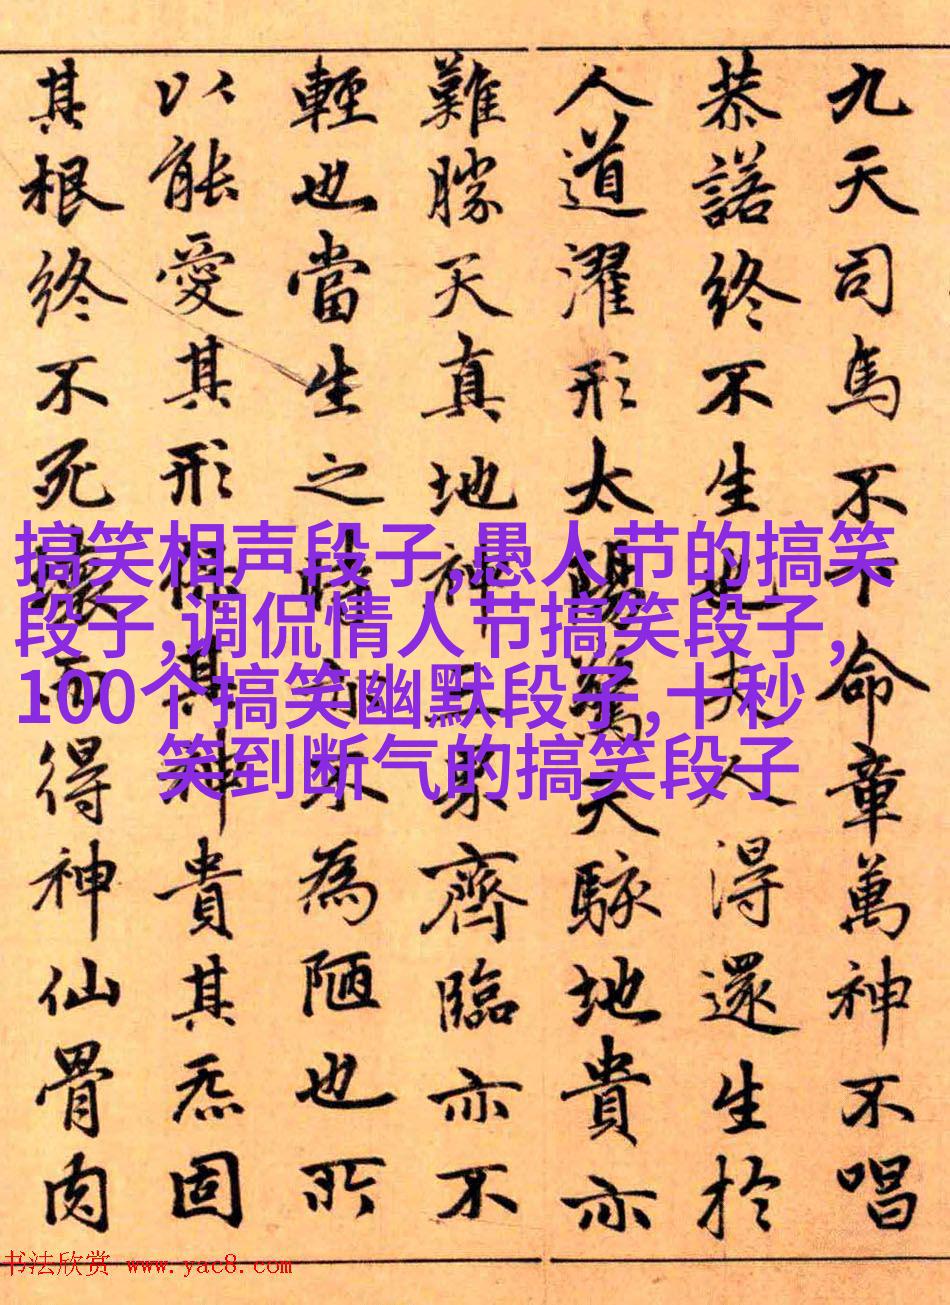 九天司馬不下命章萬神不唱
恭諾終不生也夫人得還生於
人道濯形太陽驚天駭地貴亦
難勝天真地神三界齊臨亦不
輕也當生之時亦不為陋也所
以能愛其形保其神貴其炁固
其根終不死壞而得神仙骨肉
搞笑相声段子,愚人节的搞笑
段子,调侃情人节搞笑段子,
100个搞笑幽默段子,十秒
笑到断气的搞笑段子
书法欣赏 www.yac8.com